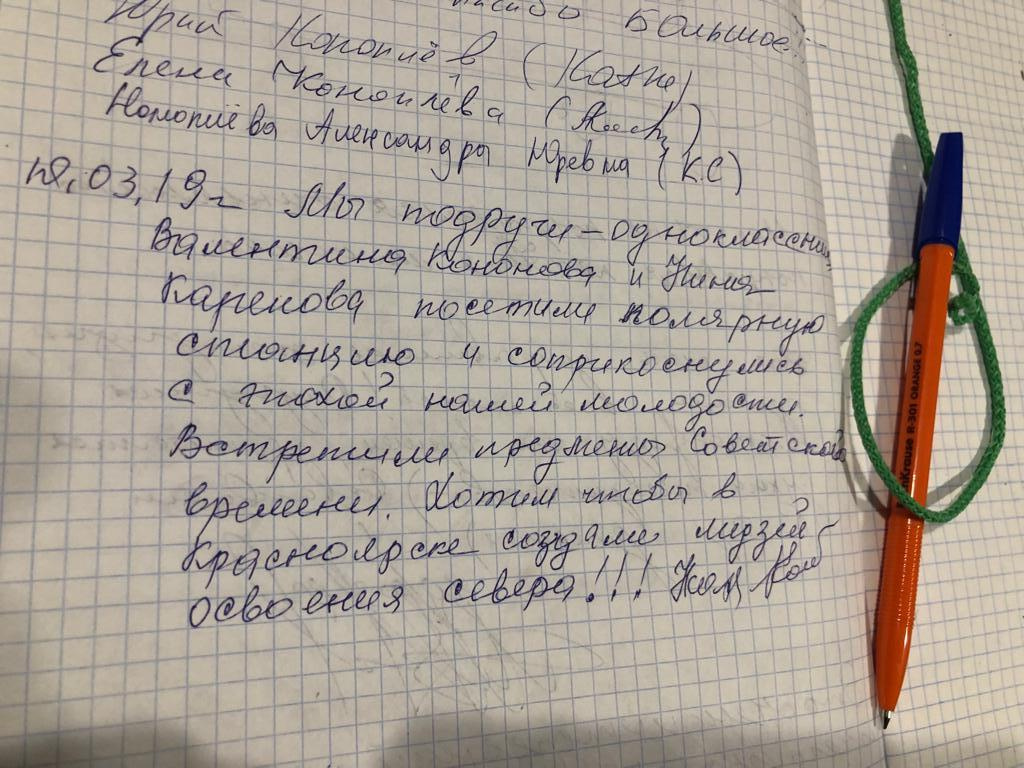 Большое
Юрий Коноплёв (
Елена Коноплёва (
Кононлёва Александра Юревна (КС)
19.03.19г Мы подруги-одноклассниц
Валентина Кононова и Нина
Каренова посетили полярную
станцию и соприкоснулись
с эпохой нашей молодости.
Встретили предметы Советской
времени. Хотим чтобы в
Красноярске создали музей
освоения севера!!!
Krause R-301 ORANGE 0.7